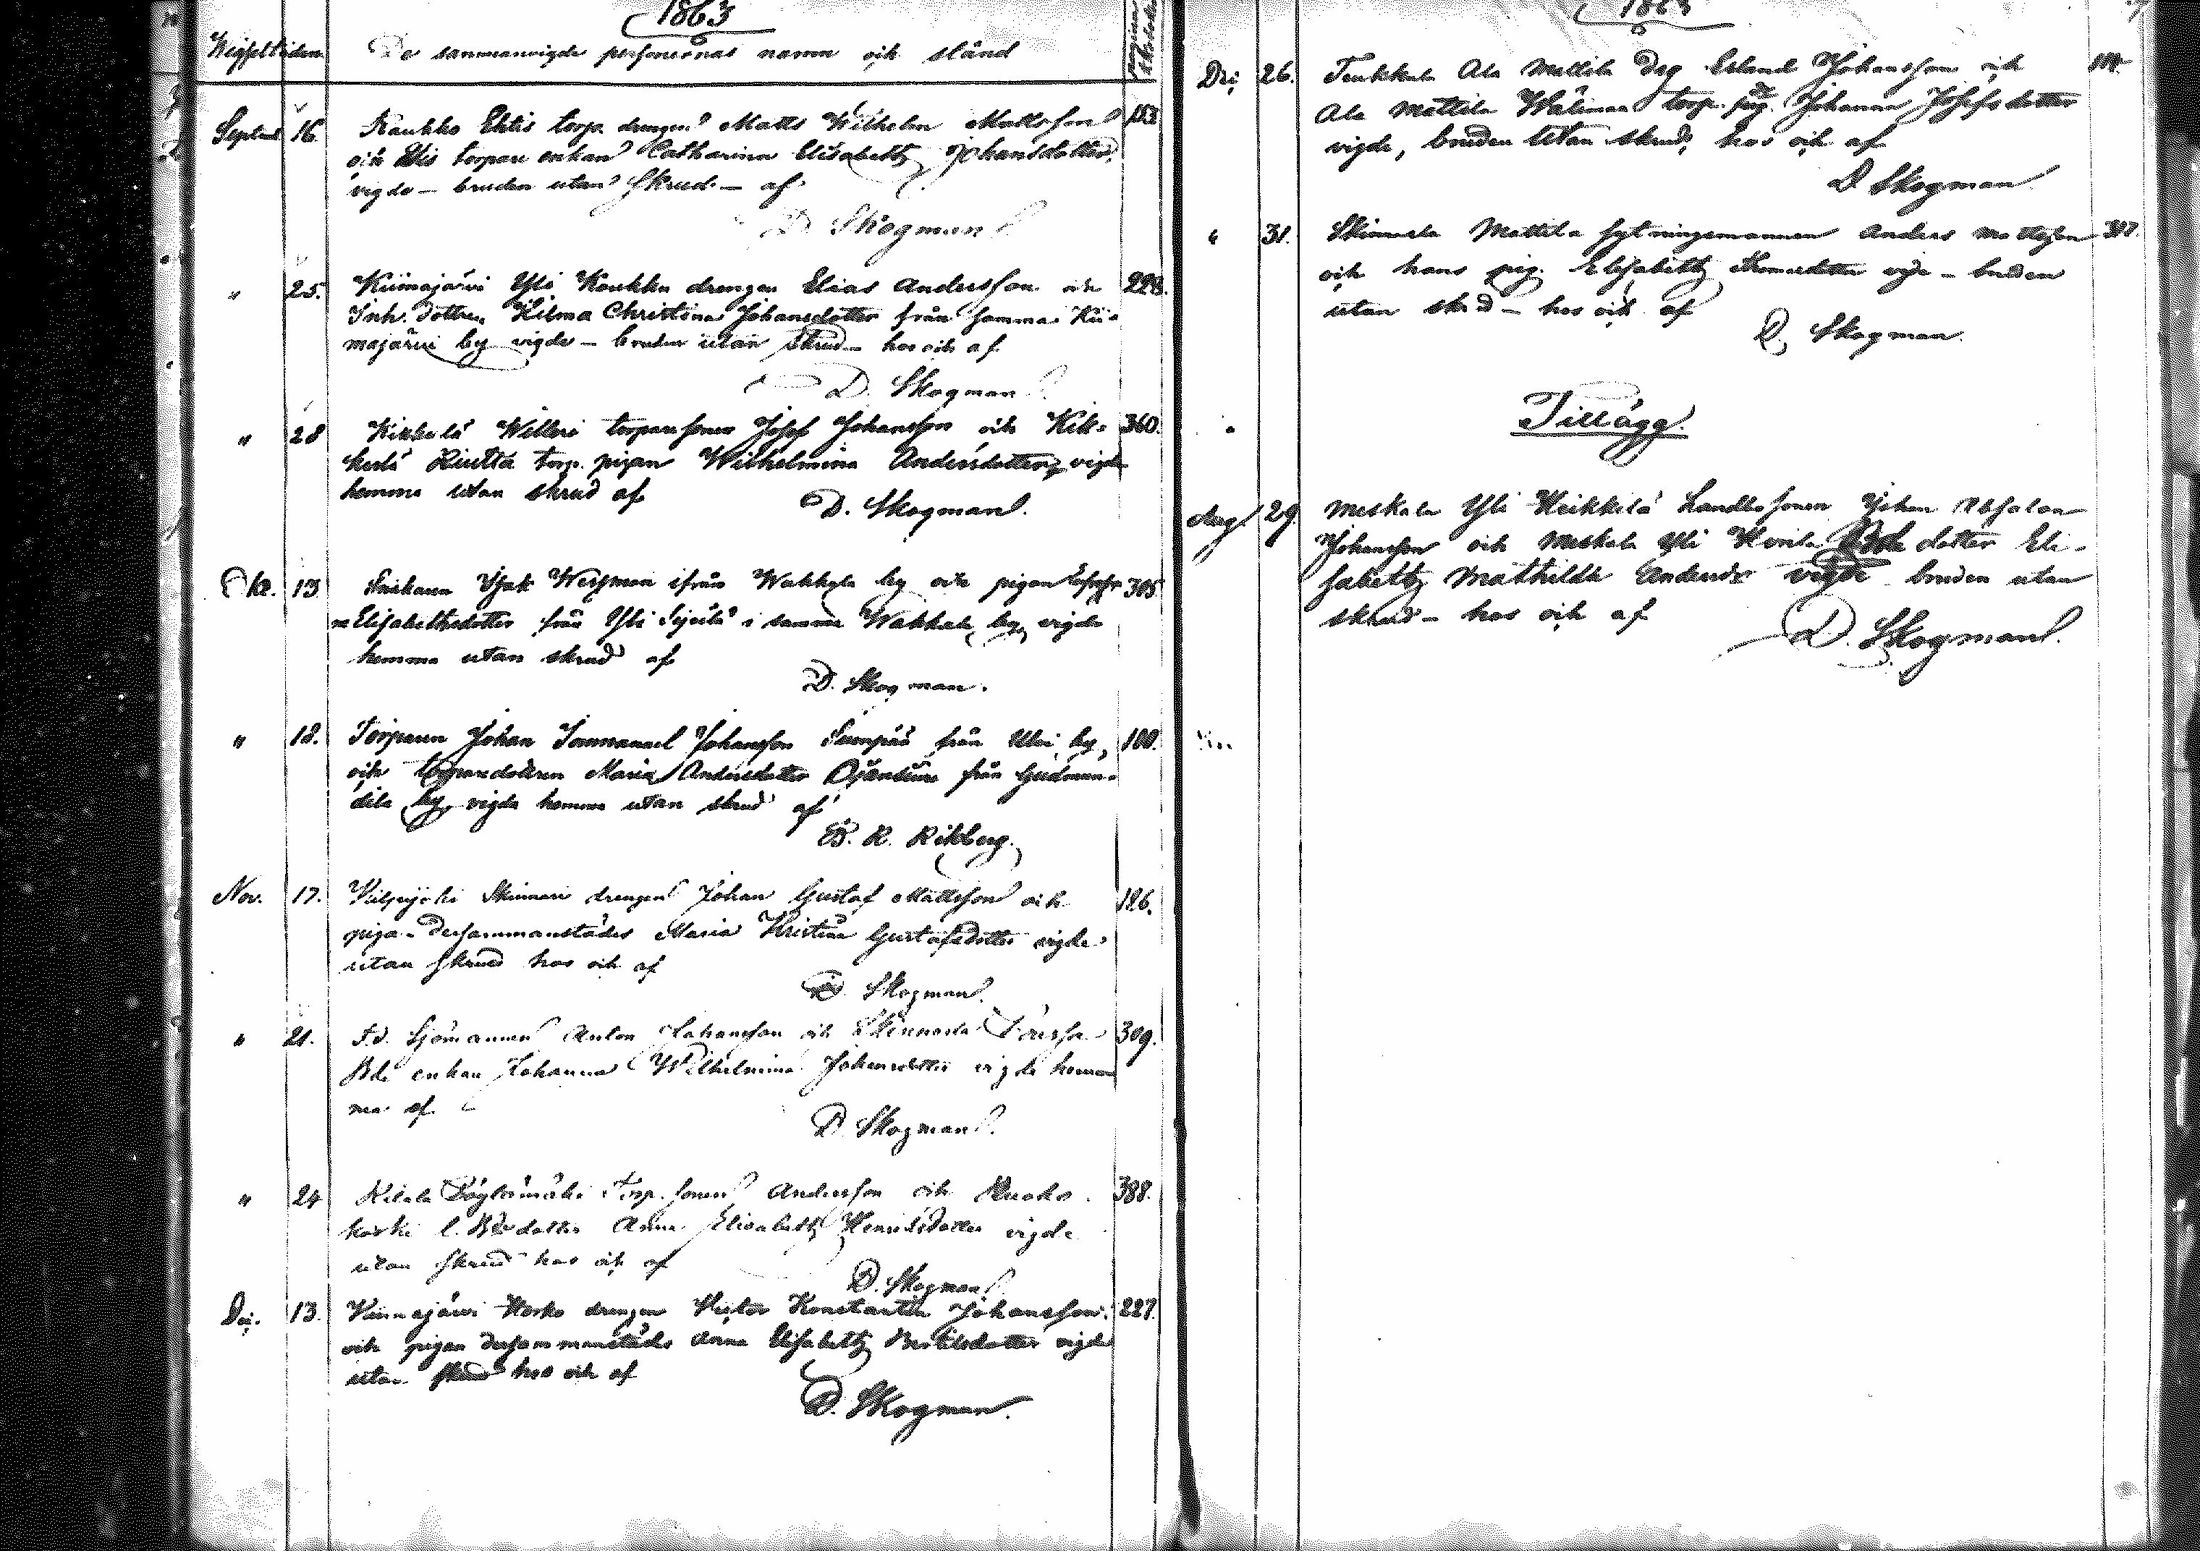 1863
De sammanvigde personernas namn och stånd
Septemb. 16. Kaukko Ehtis torp. drengen Matts Wilhelm Mattsson 153
och Ehtis torpare enkan Catharina Elisabeth Johansdotter
vigde — bruden utan skrud — af
D. Skogman
" 25. Kiimajärvi Yli Koukku drengen Elias Andersson och
Inh. dottren Hilma Christina Johansdotter från samma Kii-
majärvi by vigde — bruden utan skrud — hos och af
D. Skogman
" 28 Kikkelä Willeri torparesonen Josef Johansson och Kik- 360.
kelä torp. pigan Wilhelmina Andersdotter, vigde
hemma utan skrud af
D. Skogman.
Okt. 13 Isak Wegman ifrån by och pigan 305
Elisabethsdotter från Yli i samma by, vigde
hemma utan skrud af
D. Skogman.
" 18. Torparen Johan Immanuel Johansson från by, 100.
och torparedottren Maria Andersdotter från Gudmun-
dila by, vigde hemma utan skrud af
R. Rikberg.
Nov. 17. Kiilpijoki Skinnari drengen Johan Gustaf Mattsson och 126.
pigan dersammanstädes Maria Kristina Gustafsdotter vigde
utan skrud hos och af
D. Skogman.
" 21. F.d. Sjömannen Anton Johansson och Skinnarla 309.
enkan Johanna Wilhelmina Johansdotter vigde hem-
ma af
D. Skogman.
" 24 Kilala Torp. sonen Andersson och 388.
dotter Anna Elisabeth Henriksdotter vigde
utan skrud hos och af
D. Skogman
Dec. 13. Kiimajärvi drengen Victor Konstantin Johansson 227.
och pigan dersammanstädes Anna Elisabeth Bertilsdotter vigde
utan skrud hos och af
D. Skogman.
1863
Dec. 26. Ala Mattila drg Erland Johansson och
Ala Mattila torp. pig. Johanna Josefsdotter
vigde, bruden utan skrud, hos och af
D. Skogman
" 31. Mattila sytningsmannen Anders Mattsson
och hans pig. Elisabeth vigde — bruden
utan skrud — hos och af
D. Skogman.
Tillägg.
Aug. 29. Meskala Yli Heikkilä Landbosonen Johan Absalon
Johansson och Meskala Yli dotter Eli-
sabeth Mathilda Andersdr vigde bruden utan
skrud — hos och af
D. Skogman.